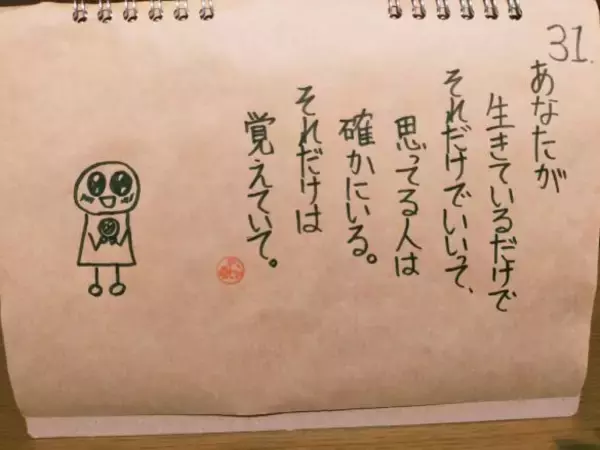 31.
あなたが
生きているだけで
それだけでいいって、
思ってる人は
確かにいる。
それだけは
覚えていて。